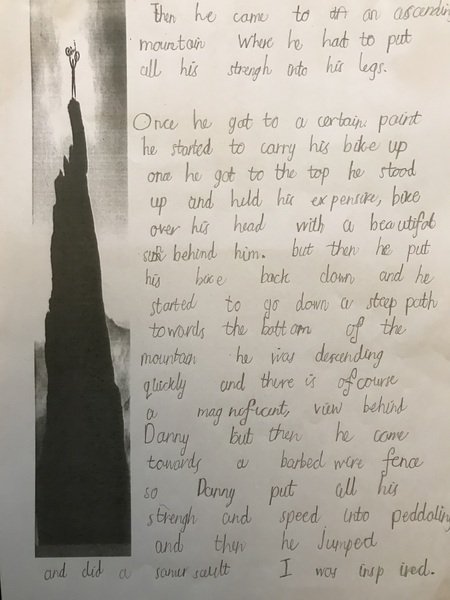 Then he came to an ascending
mountain where he had to put
all his strengh into his legs.
Once he got to a certain point
he started to carry his bike up
one he got to the top he stood
up and held his expensire, bike
over his head with a beautifal
behind him. but then he put
his bace back down and he
started to go down a steep path
towards the bottom of the
mountain he was descending
quickly and there is ofcourse
a magneficent, view behind
Danny but then he came
towards a barbed wire fence
so Danny put all his
strengh and speed into peddaling
and then he Jumped
and did a samersault I was inspired.